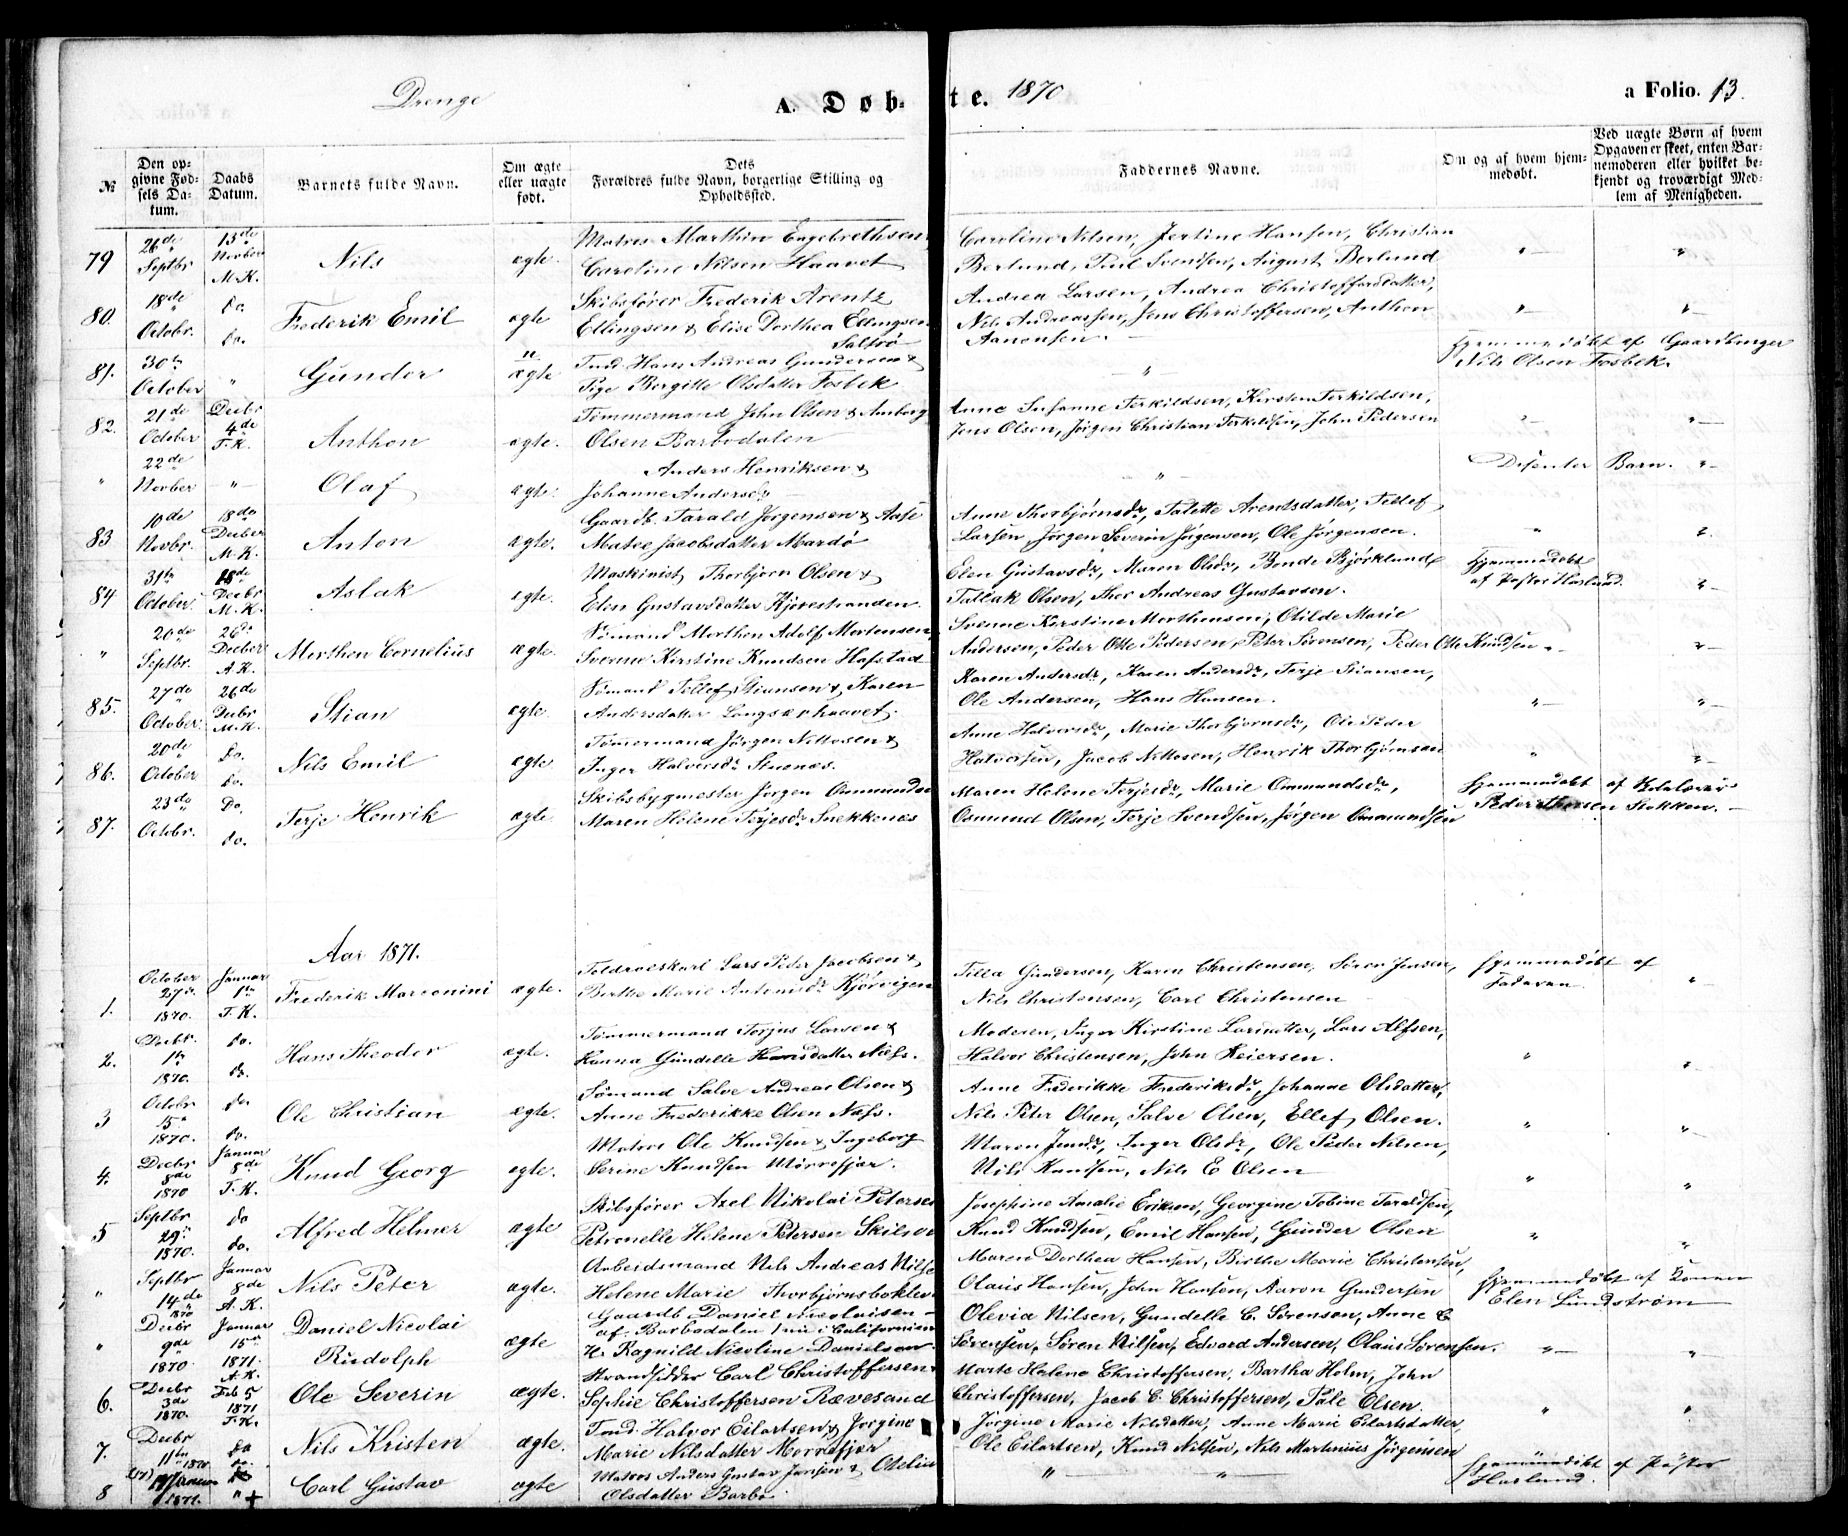 Drenge
A. Døb-te. 1870
a Folio. 13.
№
Den opgivne Fødsels Datum.
Daabs Datum.
Barnets fulde Navn.
Om ægte eller uægte født.
Dets Forældres fulde Navn, borgerlige Stilling og Opholdssted.
Faddernes Navne.
Om og af hvem hjemmedøbt.
Ved uægte Børn af hvem Opgaven er skeet, enten Barnemoderen eller hvilket bekjendt og troværdigt Medlem af Menigheden.
79 26de Septbr 13de Novber M.K. Nils ægte. Matros Marthin Engebrethsen
Caroline Nilsen Haavet
Caroline Nilsen, Jertine Hansen, Christian
Berlund, Poul Svendsen, August Berlund " "
80. 18de Octobr. do. do. Frederik Emil ægte Skibsfører Frederik Arentz
Ellingsen & Elise Dorthea Ellingsen
Salsrø
Andrea Larsen, Andrea Christoffersdatter,
Nils Andreassen, Jens Christoffersen, Anthon
Aanonsen. " "
81. 30te October " Gunder uægte Hans Andreas Gundersen &
Pige Borgitte Olsdatter Fosbek
" Hjemmedøbt af Gaardbruger
Nils Olsen Fosbek.
82. 21de October Decbr 4de T.K. Anthon ægte. Tømmermand John Olsen & Amborg
Olsen Barbodalen
Anne Susanne Terkildsen, Kirsten Terkildsen,
Jens Olsen, Jørgen Christian Terkildsen, John Pedersen " "
" 22de Novber " Olaf ægte. Anders Henriksen &
Johanne Andersdr
" Disenter Barn. "
83 10de Novbr. 18de Decber M.K. Anton ægte. Gaardb. Tarald Jørgensen & Aase
Matee Jacobsdatter Mardø
Anne Thorbjørnsdr, Talette Arentsdatter, Tellef
Larsen, Jørgen Severin Jørgensen, Ole Jørgensen. " "
84 31te October 18de Decbr M.K. Aslak ægte. Maskinist Thorbjørn Olsen &
Elen Gustavsdatter Kjørestranden.
Elen Gustavsdr, Maren Olsdr, Bonde Bjørklund
Tallak Olsen, Thor Andreas Gustavsen.
Hjemmedøbt
af Harlund. "
" 20de Septbr. 26de Decber A.K. Morthen Cornelius ægte. Sømand Morthen Adolf Mortensen
Svenne Kirstine Knudsen Hafstad
Svenne Kerstine Morthensen, Otilde Marie
Andersen, Peder Otto Pedersen, Peter Sørensen, Peder Otto Knudsen " "
85. 27de October. 26de Decbr M.K. Stian ægte. Sømand Tellef Stiansen & Karen
Andersdatter Langsærhaavet.
Karen Andersdr, Karen Andersdr, Terje Stiansen,
Ole Andersen, Hans Hansen. " "
86. 20de October do. do. Nils Emil ægte Tømmermand Jørgen Nilsen &
Inger Halvorsdr Stuenes.
Anne Halvorsdr, Marie Thorbjørnsdr, Ole Peder
Halvorsen, Jacob Nilsen, Henrik Thorbjørnsen " "
87. 23de Octobr. Do. do. Terje Henrik ægte Skibsbygmester Jørgen Osmundsen
Maren Helene Terjesdr Snekkenes
Maren Helene Terjesdr, Marie Osmundsdr,
Osmund Olsen, Terje Svendsen, Jørgen Osmundsen
Hjemmedøbt af
Peder Thorsen Stokken.
Aar 1871.
1. October 27de 1870. Januar 1te T.K. Frederik Marconini ægte. Toldroeskarl Lars Peder Jacobsen &
Berthe Marie Antonisdr Kjørvigen
Tilla Gundersen, Karen Christensen, Søren Jensen,
Nils Christensen, Carl Christensen
Hjemmedøbt af
Faderen "
2. Decbr. 1te 1870. do. do. Hans Theodor ægte. Tømmermand Torjus Larsen &
Hanna Gundelle Hansdatter Næss.
Moderen, Inger Kirstine Larsdatter, Lars Alfsen,
Halvor Christensen, John Reiersen. " "
3 Octobr 15de 1870. do. do. Ole Christian ægte. Sømand Salve Andreas Olsen &
Anne Frederikke Olsen Næss.
Anne Frederikke Frederiksdr, Johanne Olsdatter,
Nils Peter Olsen, Salve Olsen, Ellef Olsen. " "
4. Decbr 8de 1870 Januar 8de T.K. Knud Georg ægte. Matros Ole Knudsen & Ingeborg
Serine Knudsen Mørrefjær.
Maren Jensdr, Inger Olsdr, Ole Peder Nilsen,
Nils Knudsen, Nils E Olsen " "
5 Septbr 29de 1870. do do. Alfred Helmer ægte Skibsfører Axel Nikolai Petersen
Petronelle Helene Petersen Skilsøe
Josephine Amalie Eriksen, Georgine Tobine Taraldsen,
Knud Knudsen, Emil Hansen, Gunder Olsen " "
" Septbr 14de 1870 Januar 8de A.K. Nils Peter ægte. Arbeidsmand Nils Andreas Nilsen
Helene Marie Thorbjørnsboklev
Maren Dorthea Hansen, Birthe Marie Christensen,
Olaus Hansen, John Hansen, Aaron Gundersen
Hjemmedøbt af
Elen Lundstrøm
" Decbr 9de 1870 Januar 15de 1871. A.K. Daniel Nicolai
Rudolph ægte Gaardb Daniel Nicolaisen
af Barbodalen / nu i Californien
H. Ragnild Nicoline Danielsen
Olevia Nilsen, Gundelle C. Sørensen, Anne C
Sørensen, Søren Nilsen, Edvard Andersen, Olaus Sørensen. " "
6. Decbr 3de 1870. Feb 5 1871 T.K. Ole Severin ægte. Strandsidder Carl Christoffersen &
Sophie Christoffersen Rævesand
Marte Helene Christoffersen, Bertha Holm, John
Christoffersen, Jacob C. Christoffersen, Pale Olsen. " "
7. Decbr 11te 1870 do do. Nils Kristen ægte. Tømd. Halvor Eilartsen & Jørgine
Marie Nilsdatter Morrefjær
Jørgine Marie Nilsdatter, Anne Marie Eilartsdatter,
Ole Eilartsen, Knud Nilsen, Nils Martinius Jørgensen
8 Januar 1871. do " + Carl Gustav ægte Matros Anders Gustav Jansen & Otelia
Olsdatter Barbo.
" " Hjemmedøbt af
Harlund.